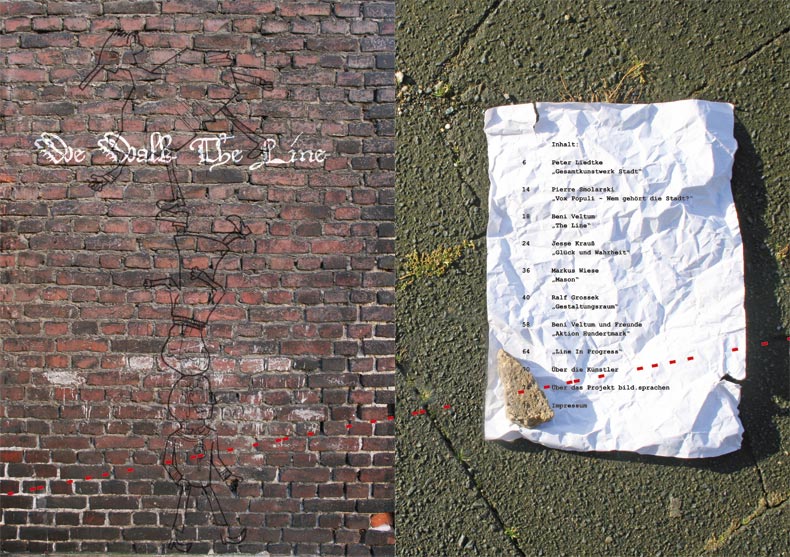 We Walk The Line
Inhalt:
6 Peter Liedtke
„Gesamtkunstwerk Stadt“
14 Pierre Smolarski
„Vox Populi - Wem gehört die Stadt?“
18 Beni Veltum
„The Line“
24 Jesse Krauß
„Glück und Wahrheit“
36 Markus Wiese
„Mason“
40 Ralf Grossek
„Gestaltungsraum“
58 Beni Veltum und Freunde
„Aktion Hundertmark“
64 „Line In Progress“
Über die Künstler
Über das Projekt bild.sprachen
Impressum